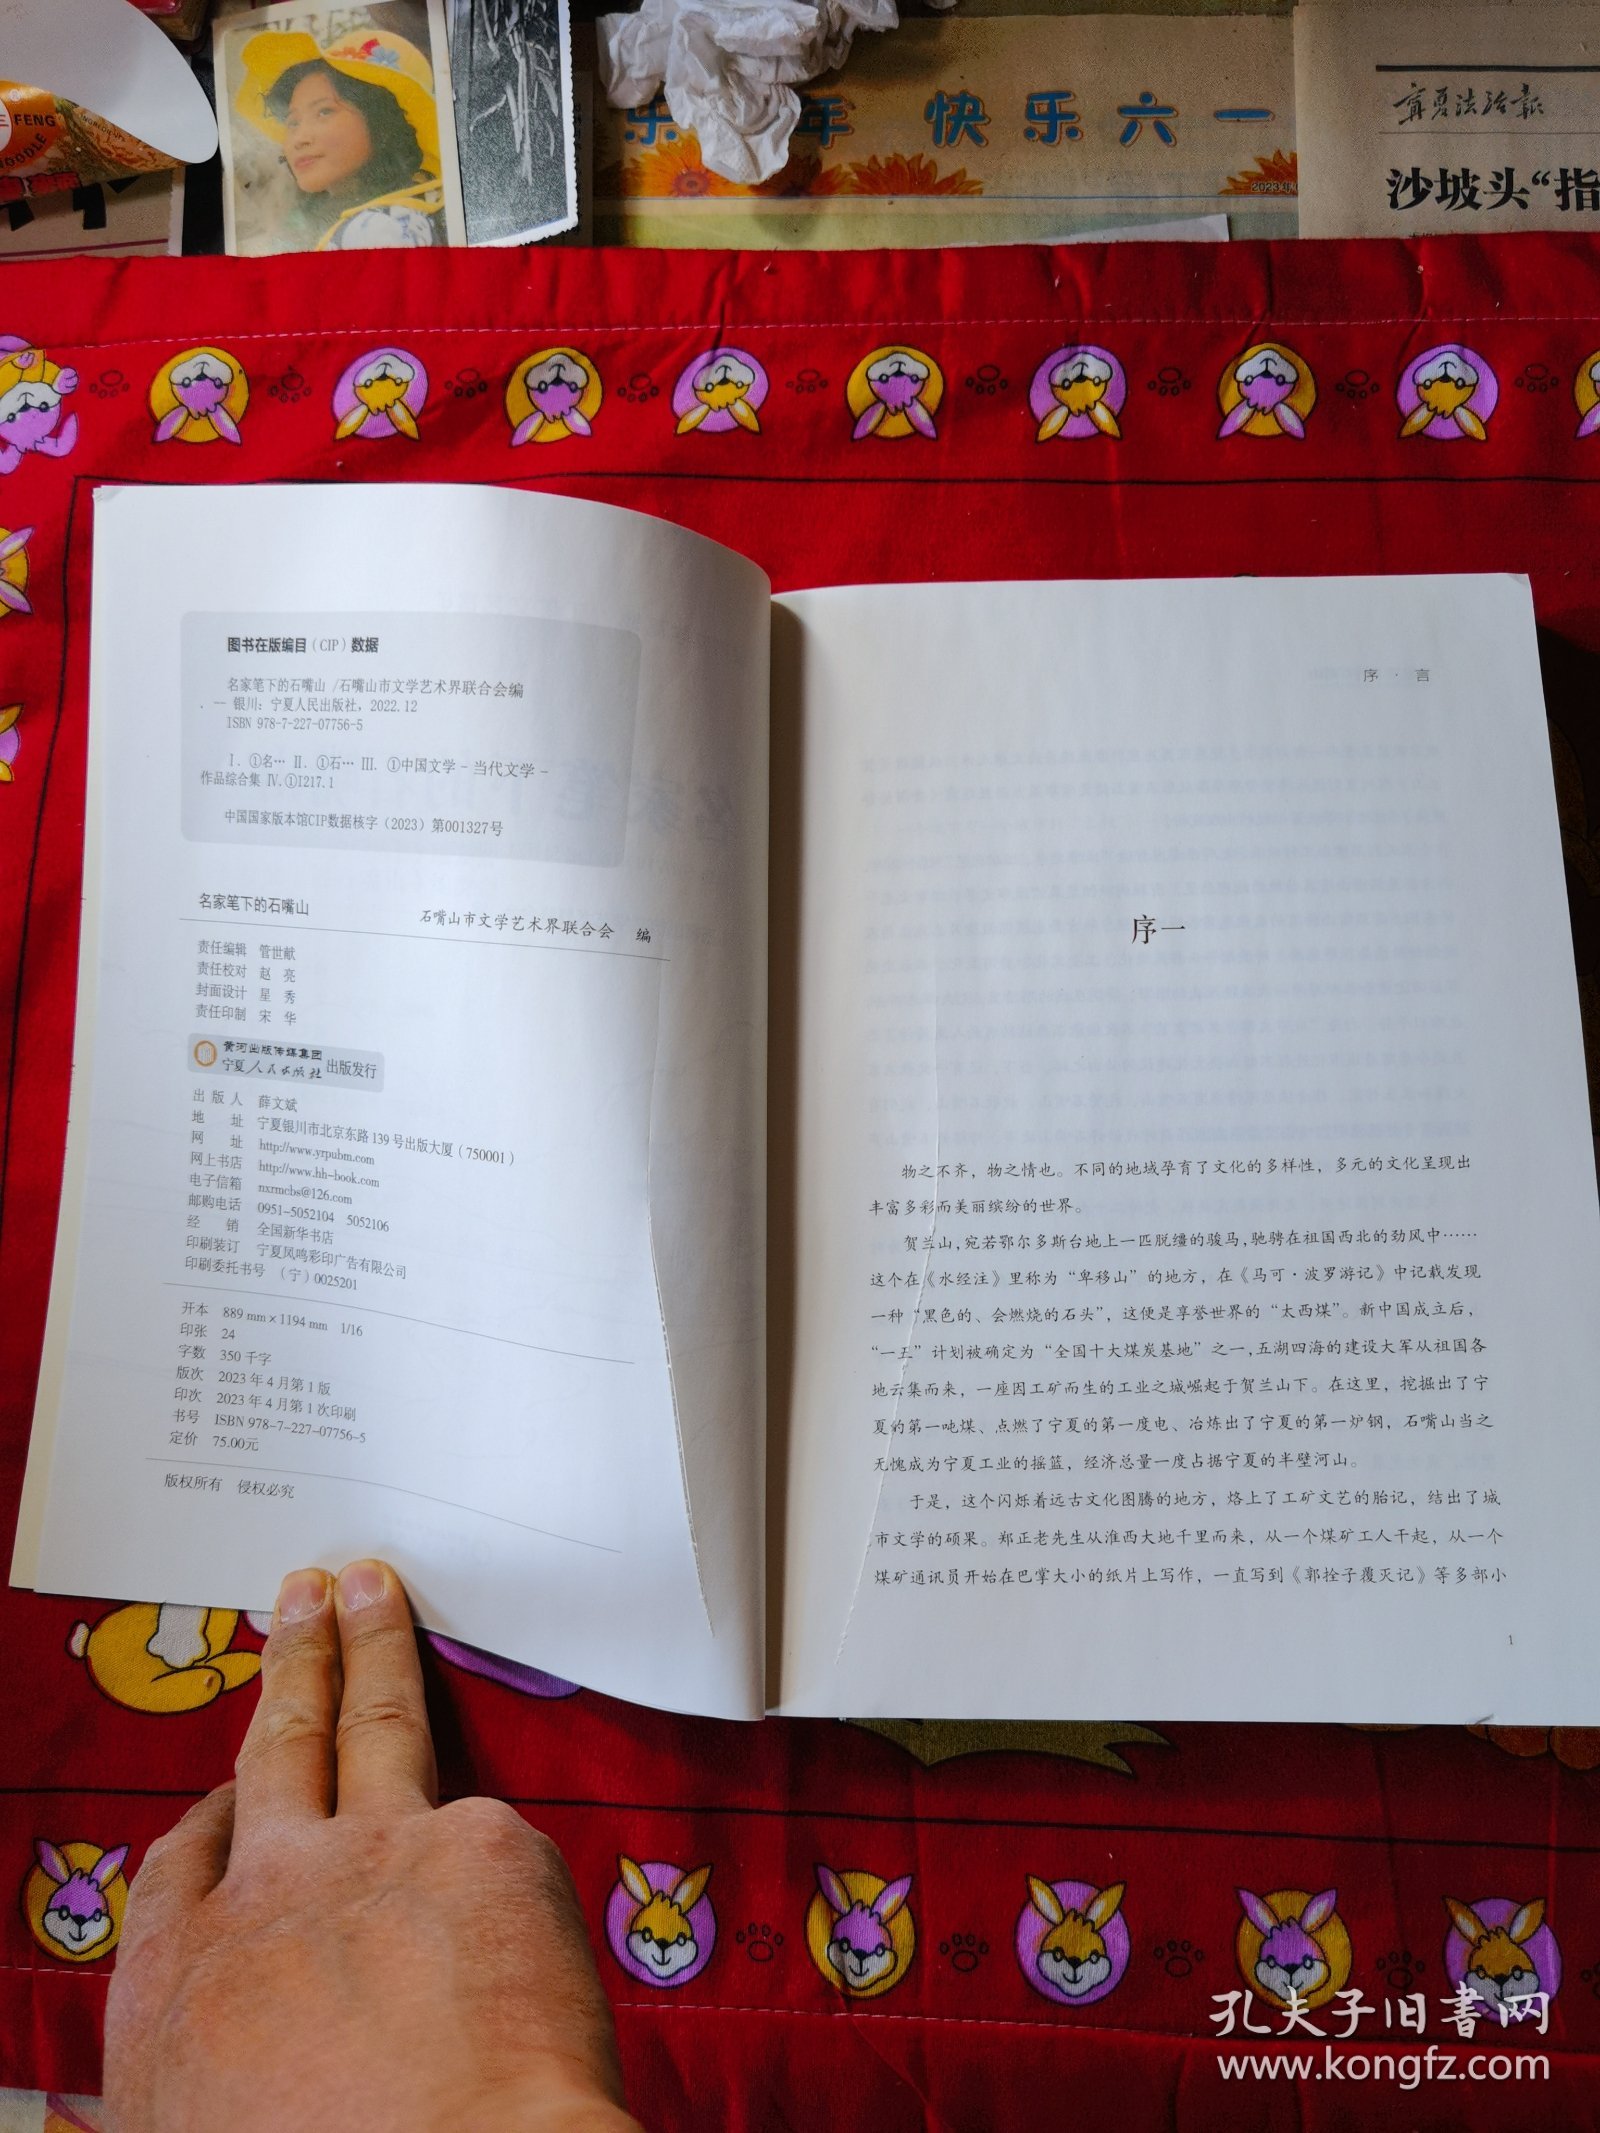 FENG
NOODLE
乐
年 快乐六一
2023年
宁夏法治报
沙坡头“指
图书在版编目（CIP）数据
名家笔下的石嘴山 /石嘴山市文学艺术界联合会编
. -- 银川：宁夏人民出版社，2022.12
ISBN 978-7-227-07756-5
Ⅰ. ①名… Ⅱ. ①石… Ⅲ. ①中国文学－当代文学－
作品综合集 Ⅳ.①I217.1
中国国家版本馆CIP数据核字（2023）第001327号
名家笔下的石嘴山 石嘴山市文学艺术界联合会 编
责任编辑 管世献
责任校对 赵 亮
封面设计 星 秀
责任印制 宋 华
黄河出版传媒集团
宁夏人民出版社 出版发行
出 版 人 薛文斌
地 址 宁夏银川市北京东路139号出版大厦（750001）
网 址 http://www.yrpubm.com
网上书店 http://www.hh-book.com
电子信箱 nxrmcbs@126.com
邮购电话 0951-5052104 5052106
经 销 全国新华书店
印刷装订 宁夏凤鸣彩印广告有限公司
印刷委托书号 （宁）0025201
开本 889 mm×1194 mm 1/16
印张 24
字数 350千字
版次 2023年4月第1版
印次 2023年4月第1次印刷
书号 ISBN 978-7-227-07756-5
定价 75.00元
版权所有 侵权必究
序·言
序一
物之不齐，物之情也。不同的地域孕育了文化的多样性，多元的文化呈现出
丰富多彩而美丽缤纷的世界。
贺兰山，宛若鄂尔多斯台地上一匹脱缰的骏马，驰骋在祖国西北的劲风中……
这个在《水经注》里称为“卑移山”的地方，在《马可·波罗游记》中记载发现
一种“黑色的、会燃烧的石头”，这便是享誉世界的“太西煤”。新中国成立后，
“一五”计划被确定为“全国十大煤炭基地”之一，五湖四海的建设大军从祖国各
地云集而来，一座因工矿而生的工业之城崛起于贺兰山下。在这里，挖掘出了宁
夏的第一吨煤、点燃了宁夏的第一度电、冶炼出了宁夏的第一炉钢，石嘴山当之
无愧成为宁夏工业的摇篮，经济总量一度占据宁夏的半壁河山。
于是，这个闪烁着远古文化图腾的地方，烙上了工矿文艺的胎记，结出了城
市文学的硕果。郑正老先生从淮西大地千里而来，从一个煤矿工人干起，从一个
煤矿通讯员开始在巴掌大小的纸片上写作，一直写到《郭拴子覆灭记》等多部小
1
孔夫子旧书网
www.kongfz.com